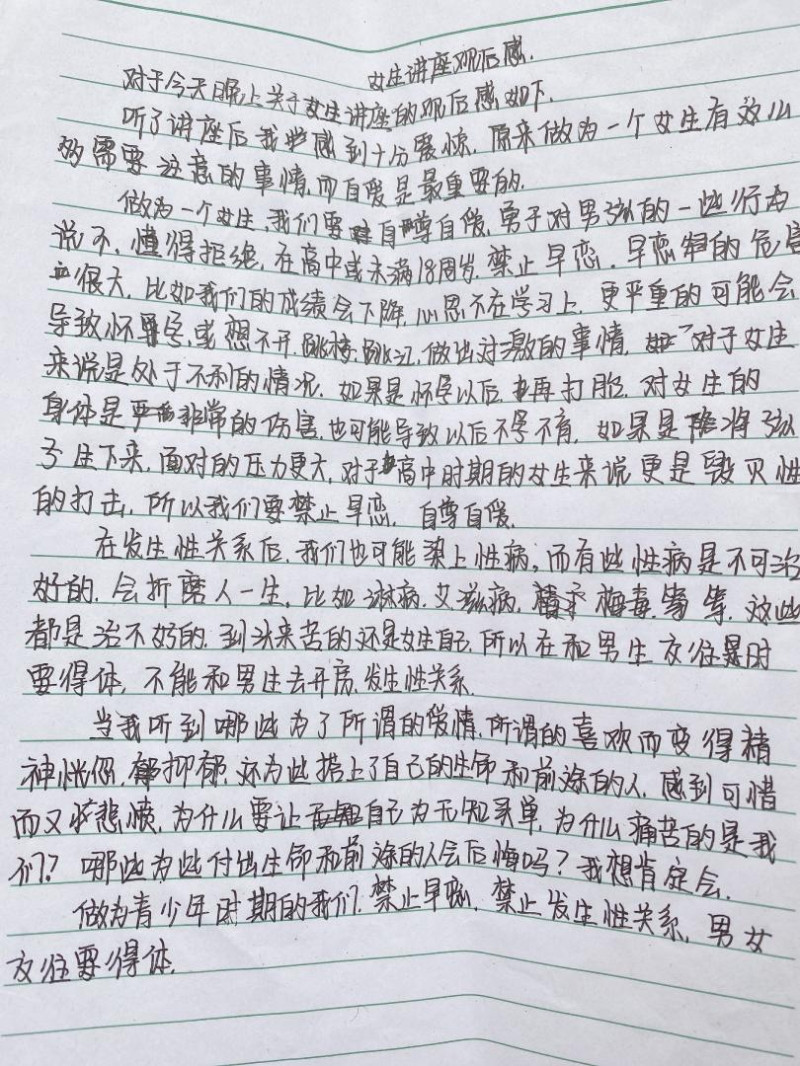 女生讲座观后感.
对于今天晚上关于女生讲座的观后感如下.
听了讲座后我感到十分震惊,原来做为一个女生有这么
多需要注意的事情,而自爱是最重要的.
做为一个女生,我们要自尊自爱,勇于对男孩的一些行为
说不,懂得拒绝,在高中或未满18周岁,禁止早恋.早恋的危害
很大,比如我们的成绩会下降,心思不在学习上,更严重的可能会
导致怀孕,或想不开,跳楼,跳江,做出过激的事情,对于女生
来说是处于不利的情况,如果是怀孕以后,再打胎,对女生的
身体是非常的伤害,也可能导致以后不孕不育,如果是将孩
子生下来,面对的压力更大,对于高中时期的女生来说更是毁灭性
的打击,所以我们要禁止早恋,自尊自爱.
在发生性关系后,我们也可能染上性病,而有些性病是不可治
好的,会折磨人一生,比如淋病,艾滋病,梅毒,等,这些
都是治不好的,到头来苦的还是女生自己,所以在和男生交往时
要得体,不能和男生去开房,发生性关系.
当我听到哪些为了所谓的爱情,所谓的喜欢而变得精
神恍惚,抑郁,还为此搭上了自己的生命和前途的人,感到可惜
而又悲愤,为什么要让自己为无知买单,为什么痛苦的是我
们?哪些为此付出生命和前途的人会后悔吗?我想肯定会.
做为青少年时期的我们,禁止早恋,禁止发生性关系,男女
交往要得体.